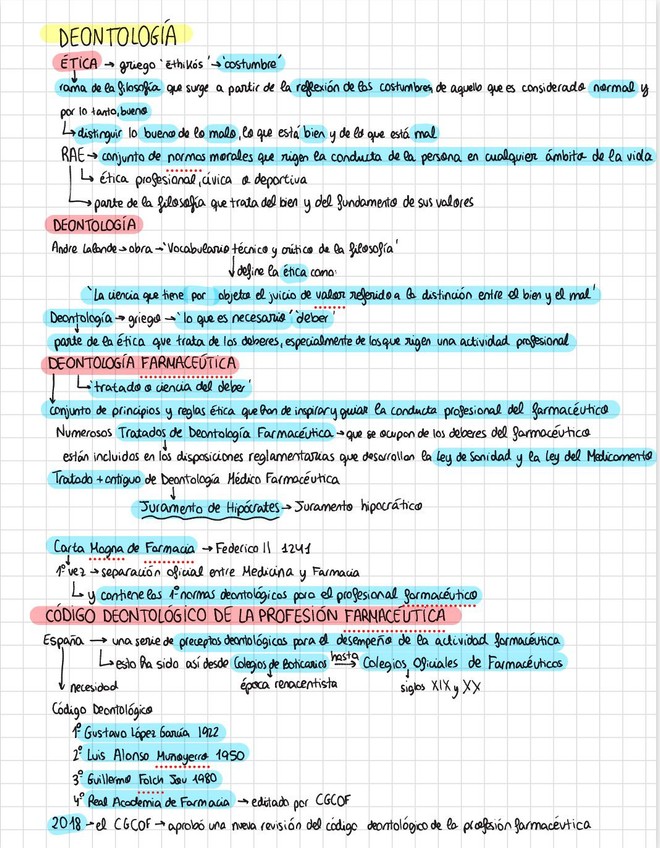 DEONTOLOGÍA
ÉTICA → griego 'Ethikós' → 'costumbre'
rama de la filosofía que surge a partir de la reflexión de las costumbres, de aquello que es considerado normal y
por lo tanto, bueno
↳ distinguir lo bueno de lo malo, lo que está bien y de lo que está mal
RAE → conjunto de normas morales que rigen la conducta de la persona en cualquier ámbito de la vida
↳ ética profesional, cívica o deportiva
↳ parte de la filosofía que trata del bien y del fundamento de sus valores
DEONTOLOGÍA
Andre Lalande → obra → 'Vocabulario técnico y crítico de la filosofía'
↓ define la ética como:
'La ciencia que tiene por objeto el juicio de valor referido a la distinción entre el bien y el mal'
Deontología → griego → 'lo que es necesario' 'deber'
parte de la ética que trata de los deberes, especialmente de los que rigen una actividad profesional
DEONTOLOGÍA FARMACEÚTICA
↳ 'tratado o ciencia del deber'
conjunto de principios y reglas ética que han de inspirar y guiar la conducta profesional del farmacéutico
Numerosos Tratados de Deontología Farmacéutica → que se ocupan de los deberes del farmacéutico
están incluidos en las disposiciones reglamentarias que desarrollan la Ley de Sanidad y la Ley del Medicamento
Tratado + antiguo de Deontología Médico Farmacéutica
↓
Juramento de Hipócrates → Juramento hipocrático
Carta Magna de Farmacia → Federico II 1241
1ª vez → separación oficial entre Medicina y Farmacia
↳ y contiene las 1ª normas deontológicas para el profesional farmacéutico
CÓDIGO DEONTOLÓGICO DE LA PROFESIÓN FARMACÉUTICA
España → una serie de preceptos deontológicos para el desempeño de la actividad farmacéutica
↳ esto ha sido así desde Colegios de Boticarios hasta → Colegios Oficiales de Farmacéuticos
↓ necesidad época renacentista siglos XIX y XX
Código Deontológico
1º Gustavo López García 1922
2º Luis Alonso Munoyerro 1950
3º Guillermo Folch Jou 1980
4º Real Academia de Farmacia → editado por CGCOF
2018 → el CGCOF → aprobó una nueva revisión del código deontológico de la profesión farmacéutica